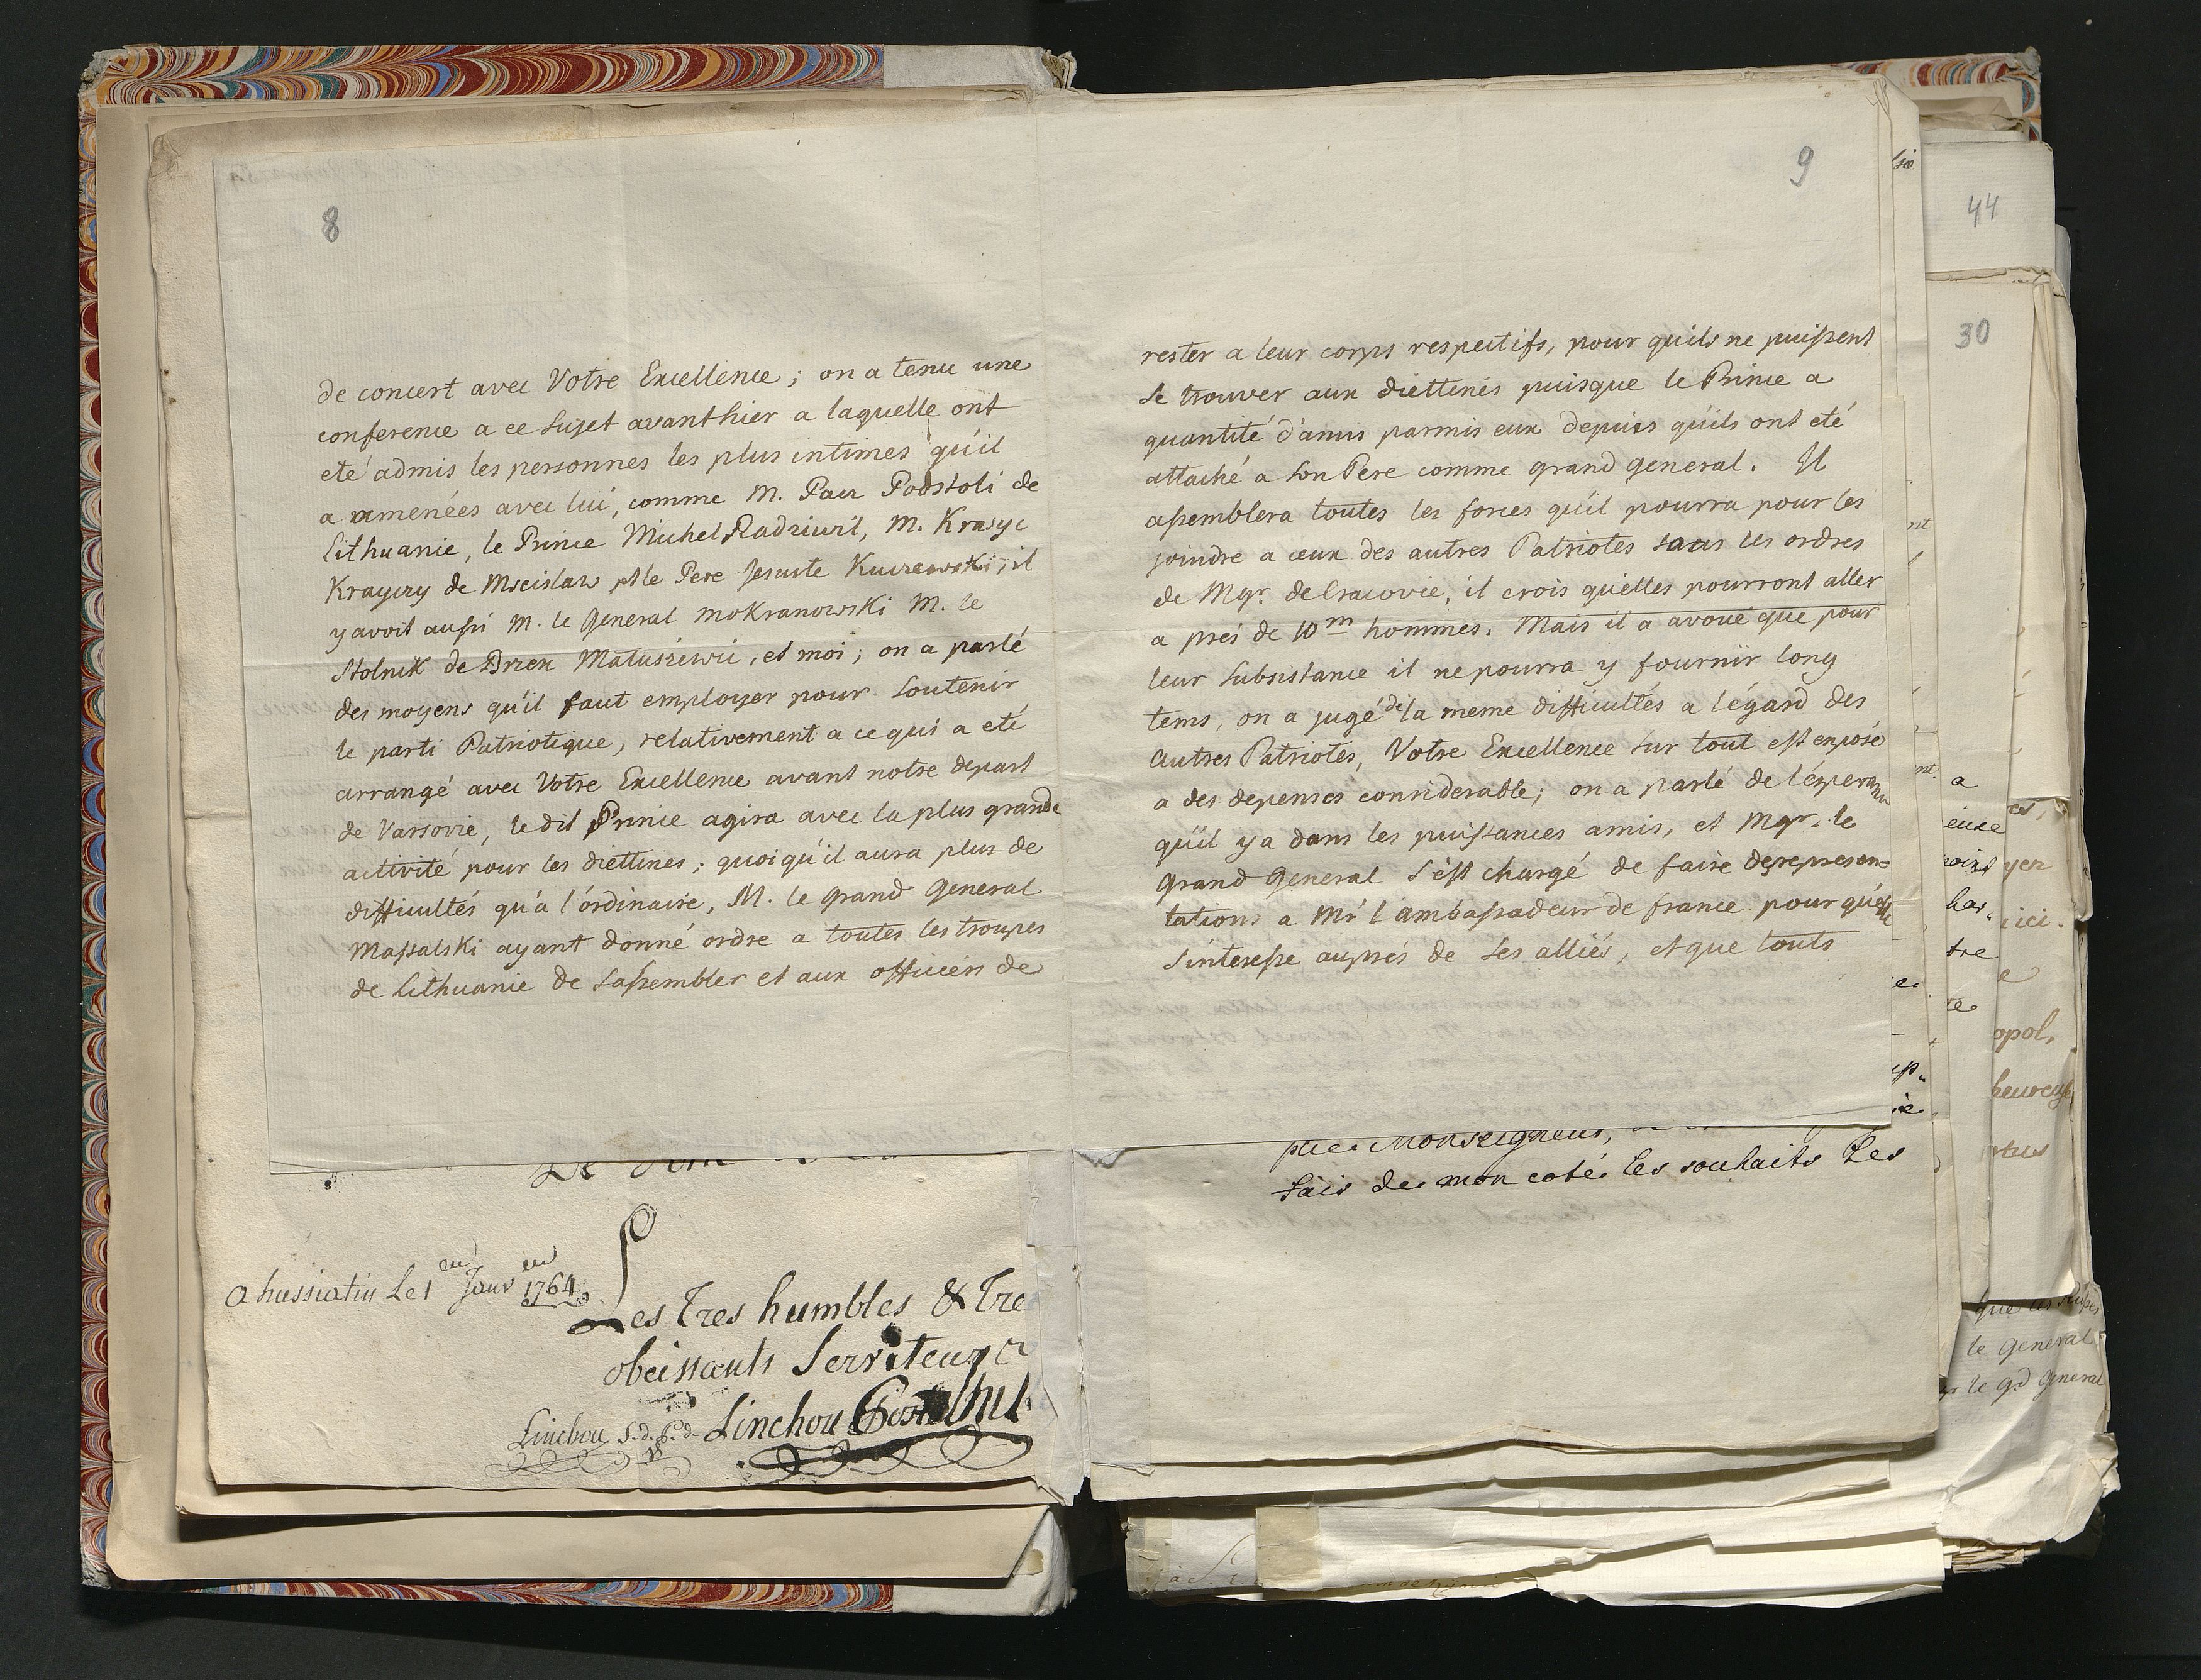 8
de concert avec Votre Excellence ; on a tenu une
conference a ce sujet avanthier a laquelle ont
eté admis les personnes les plus intimes qu'il
a amenées avec lui, comme M. Pac Podstoli de
Lithuanie, le Prince Michel Radziwil, M. Krasyc
Krayczy de Mscislaw, et le Pere Jesuite Kuczewski, il
y avoit aussi M. le General Mokranowski M. le
Stolnik de Brzesc Matuszewic, et moi ; on a parlé
des moyens qu'il faut employer pour soutenir
le parti Patriotique, relativement a ce qui a eté
arrangé avec Votre Excellence avant notre depart
de Varsovie, le dit Prince agira avec la plus grande
activité pour les diettines ; quoiqu'il aura plus de
difficultés qu'à l'órdinaire, M. le Grand General
Massalski ayant donné ordre a toutes les troupes
de Lithuanie de s'assembler et aux officiers de
a hussiatin Le 1er Janv 1764
Les Tres humbles & Tre
obeissants Serviteurs
Linchou Linchou
9
rester a leur corps respectifs, pour qu'ils ne puissent
se trouver aux diettines puisque le Prince a
quantité d'amis parmis eux depuis qu'ils ont eté
attaché a son Pere comme grand General. Il
assemblera toutes les forces qu'il pourra pour les
joindre a ceux des autres Patriotes sous les ordres
de Mgr. de Cracovie, il crois qu'elles pourront aller
a prés de 10m hommes. Mais il a avoué que pour
leur subsistance il ne pourra y fournir long
tems, on a jugé de la meme difficultés a l'égard des
autres Patriotes, Votre Excellence sur tout est exposé
a des depenses considerable ; on a parlé de l'ésperance
qu'il y a dans les puissances amis, et Mgr. le
Grand General s'ést chargé de faire des represen=
tations a Mr l'ambassadeur de france pour qu'elle
s'interesse auprés de ses alliés, et que touts
Monseigneur,
fais de mon coté les souhaits Les
44
30
a
tre
yer
ici.
opol,
le General
le Gd General